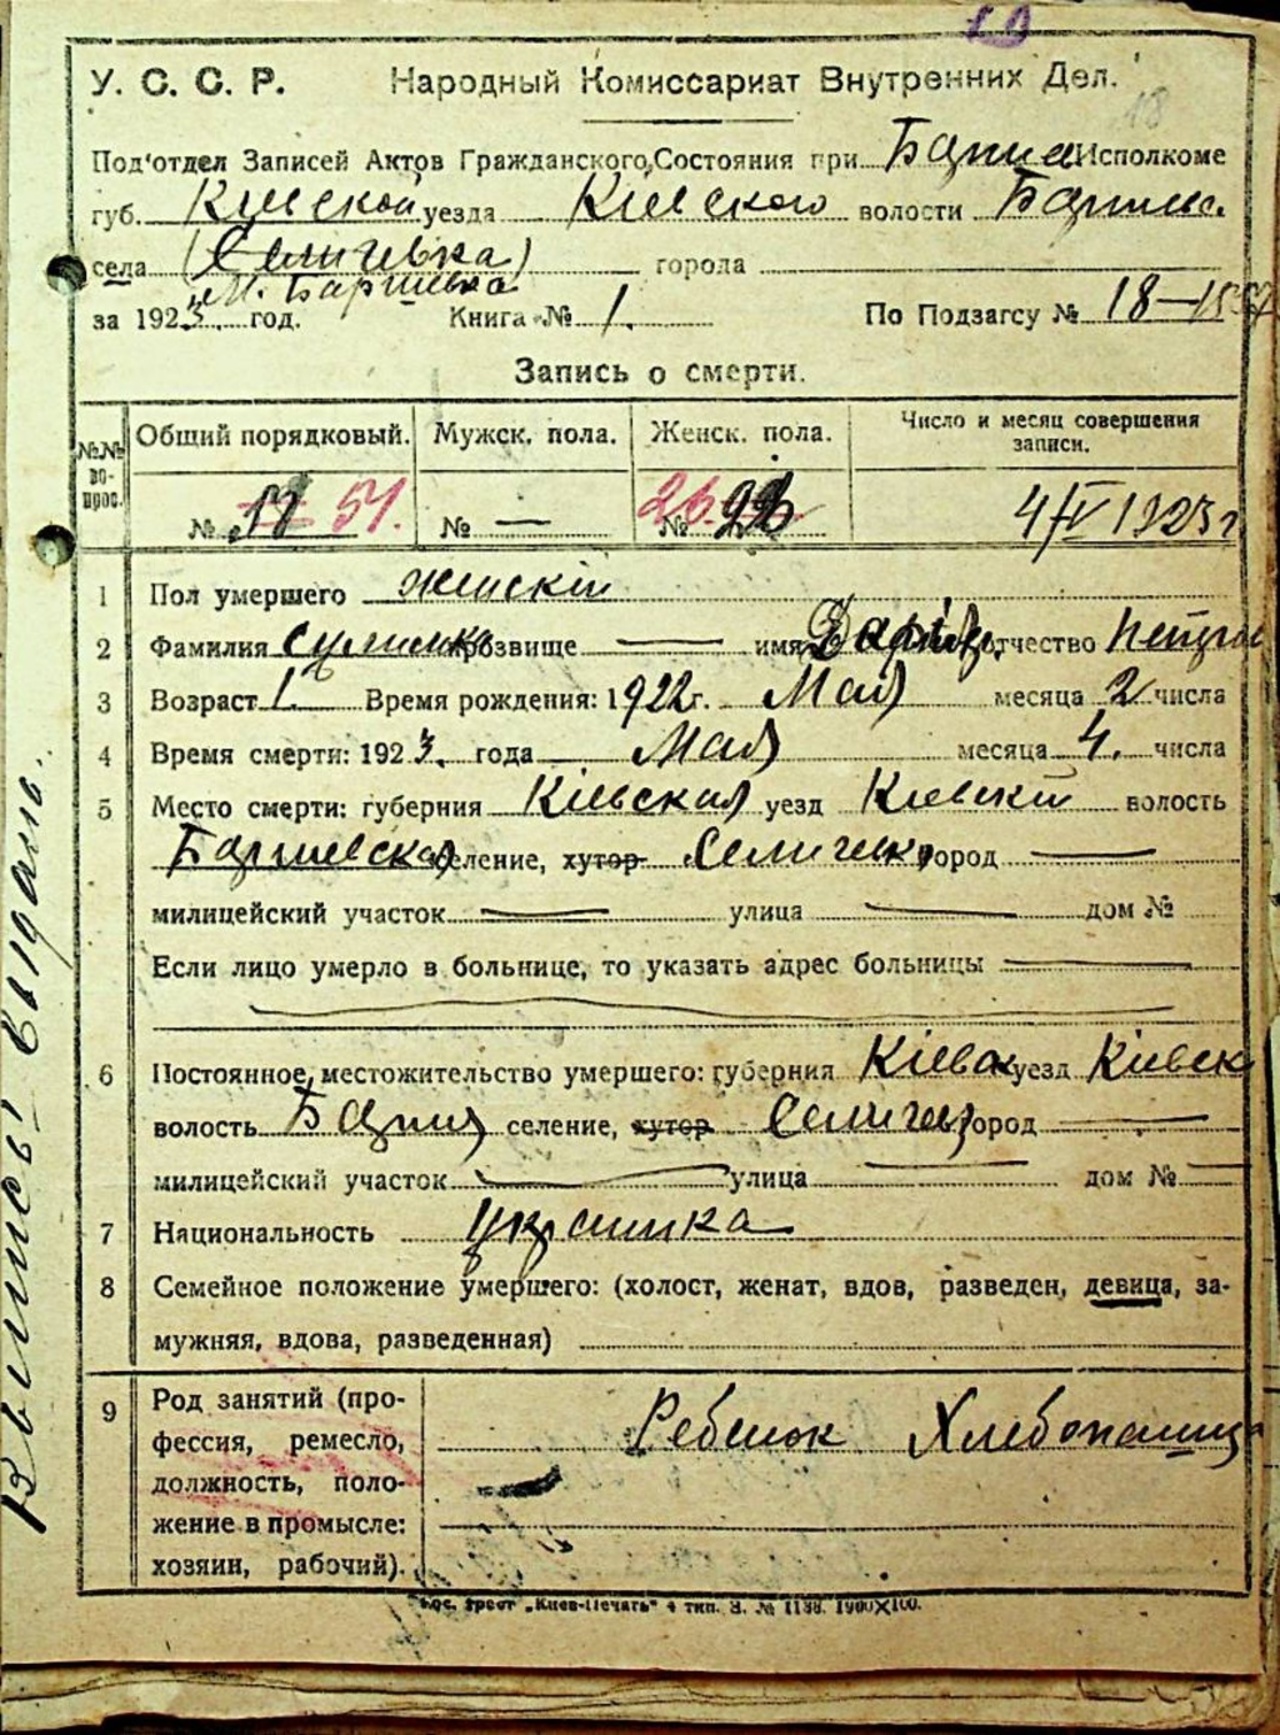 У. С. С. Р. Народный Комиссариат Внутренних Дел.
18
Под'отдел Записей Актов Гражданского Состояния при Исполкоме
губ. Киевской уезда Кіевского волости
села (Селичевка) города
М. Барышевка
за 1923 год. Книга № 1. По Подзагсу № 18—
Запись о смерти.
№№ вопрос. Общий порядковый. Мужск. пола. Женск. пола. Число и месяц совершения записи.
№ 51. № — 26. № 4/V 1923 г
1 Пол умершего женскій
2 Фамилия прозвище — имя Дарія отчество
3 Возраст 1. Время рождения: 1922 г. Мая месяца 2 числа
4 Время смерти: 1923. года Мая месяца 4. числа
5 Место смерти: губерния Кіевская уезд Кіевскій волость
Барышевская селение, хутор город —
милицейский участок — улица — дом №
Если лицо умерло в больнице, то указать адрес больницы —
6 Постоянное местожительство умершего: губерния уезд Кіевск
волость селение, хутор город —
милицейский участок — улица — дом № —
7 Национальность украинка
8 Семейное положение умершего: (холост, женат, вдов, разведен, девица, за-
мужняя, вдова, разведенная)
9 Род занятий (про-
фессия, ремесло,
должность, поло-
жение в промысле:
хозяин, рабочий).
Ребенок Хлебопашца
Гос. трест „Киев-Печать" 4 тип. З. № 1138. 1900X100.
выданы.